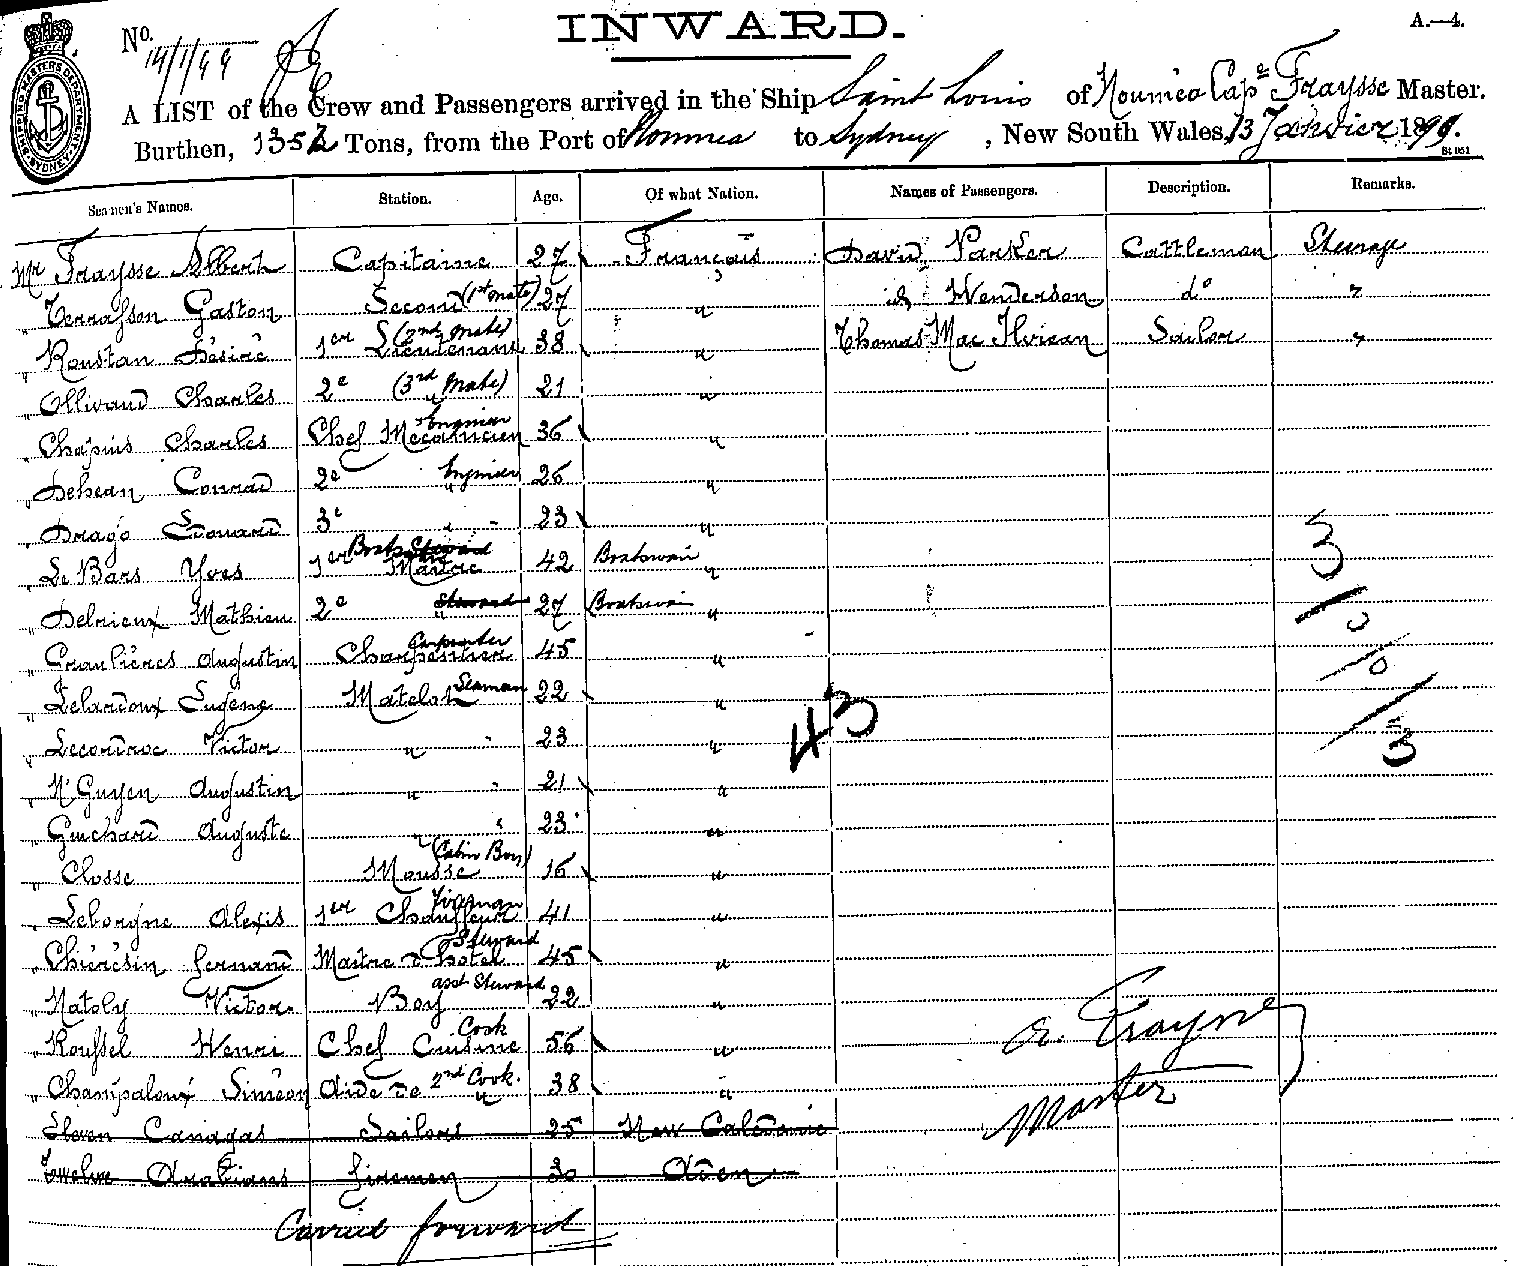 INWARD.
A.—4.
No.
14/1/99
A LIST of the Crew and Passengers arrived in the Ship Saint Louis of Nouméa Cape Fraysse Master.
Burthen, 1352 Tons, from the Port of Noumea to Sydney, New South Wales, 13 Janvier 1899.
St 051
SHIPPING MASTERS DEPARTMENT
Seamen's Names. Station. Age. Of what Nation. Names of Passengers. Description. Remarks.
Mr Fraysse Albert Capitaine 27 Français David Parker Cattleman Steerage
" Terrasson Gaston Second (1st Mate) 27 " " Henderson do "
" Roustan Désiré 1er Lieutenant (2nd Mate) 38 " Thomas Mac Sailor "
" Ollivaud Charles 2e " (3rd Mate) 21 "
" Chapuis Charles Chef Mecanicien Engineer 36 "
" Dehean Conrad 2e " Engineer 26 "
" Drago Edouard 3e " " 23 "
" Le Bars Yves 1er Maitre 42 Boatswain "
" Delrieux Mathieu 2e " Steward 27 Boatswain "
" Graulières Augustin Charpentier Carpenter 45 "
" Lelardoux Eugène Matelot Seaman 22 "
" Victor " " 23 "
" N'Guyen Augustin " " 21 "
" Guichard Auguste " " 23 "
" Closse Mousse (Cabin Boy) 16 "
" Leborgne Alexis 1er Chauffeur Fireman 41 "
" Chérésin Fernand Maitre d'hotel Steward 45 "
" Natoly Victor Boy asst Steward 22 "
" Roussel Henri Chef Cuisine Cook 56 "
" Champaloux Siméon Aide de " 2nd Cook. 38 "
Eleven Canagas Sailors 25 New Caledonie
Twelve Arabians Firemen 30 Aden
Carried forward
43
3
10
10
3
A. Fraysse
Master